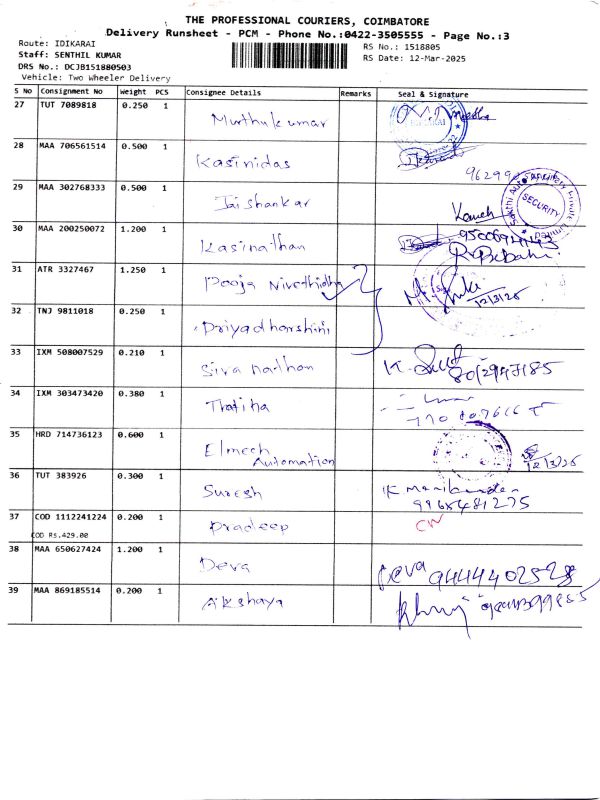 THE PROFESSIONAL COURIERS, COIMBATORE
Delivery Runsheet - PCM - Phone No.:0422-3505555 - Page No.:3
Route: IDIKARAI
RS No.: 1518805
Staff: SENTHIL KUMAR
RS Date: 12-Mar-2025
DRS No.: DCJB151880503
Vehicle: Two Wheeler Delivery
S No Consignment No Weight PCS Consignee Details Remarks Seal & Signature
27 TUT 7089818 0.250 1 Muthukumar
28 MAA 706561514 0.500 1 Kasinidas
29 MAA 302768333 0.500 1 Jaishankar
SECURITY
30 MAA 200250072 1.200 1 Kasinathan
31 ATR 3327467 1.250 1 Pooja Nivethidha
12/3/25
32 TNJ 9811018 0.250 1 Priyadharshini
33 IXM 508007529 0.210 1 Siva nathan
34 IXM 303473420 0.380 1 Thatiha
35 HRD 714736123 0.600 1 Elmech
Automation
12/3/25
36 TUT 383926 0.300 1 Suresh
9965481275
37 COD 1112241224 0.200 1 Pradeep
COD Rs.429.00
38 MAA 650627424 1.200 1 Deva Deva 9444402528
39 MAA 869185514 0.200 1 Akshaya